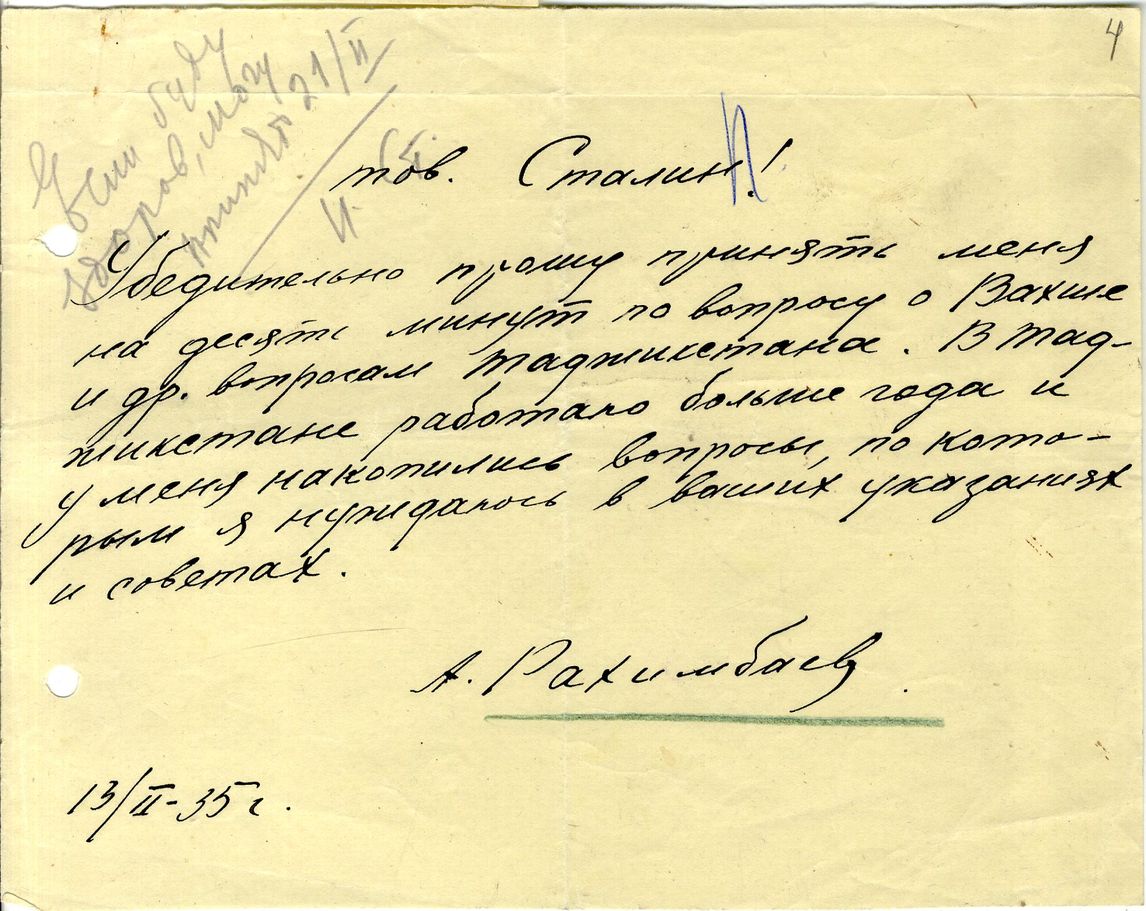 4
Если буду
здоров, могу
принять 21/II
И. Ст.
П
тов. Сталин!
Убедительно прошу принять меня
на десять минут по вопросу о Вахше
и др. вопросам Таджикстана. В Тад-
жикстане работаю больше года и
у меня накопились вопросы, по кото-
рым я нуждаюсь в ваших указаниях
и советах.
А. Рахимбаев.
13/II-35 г.